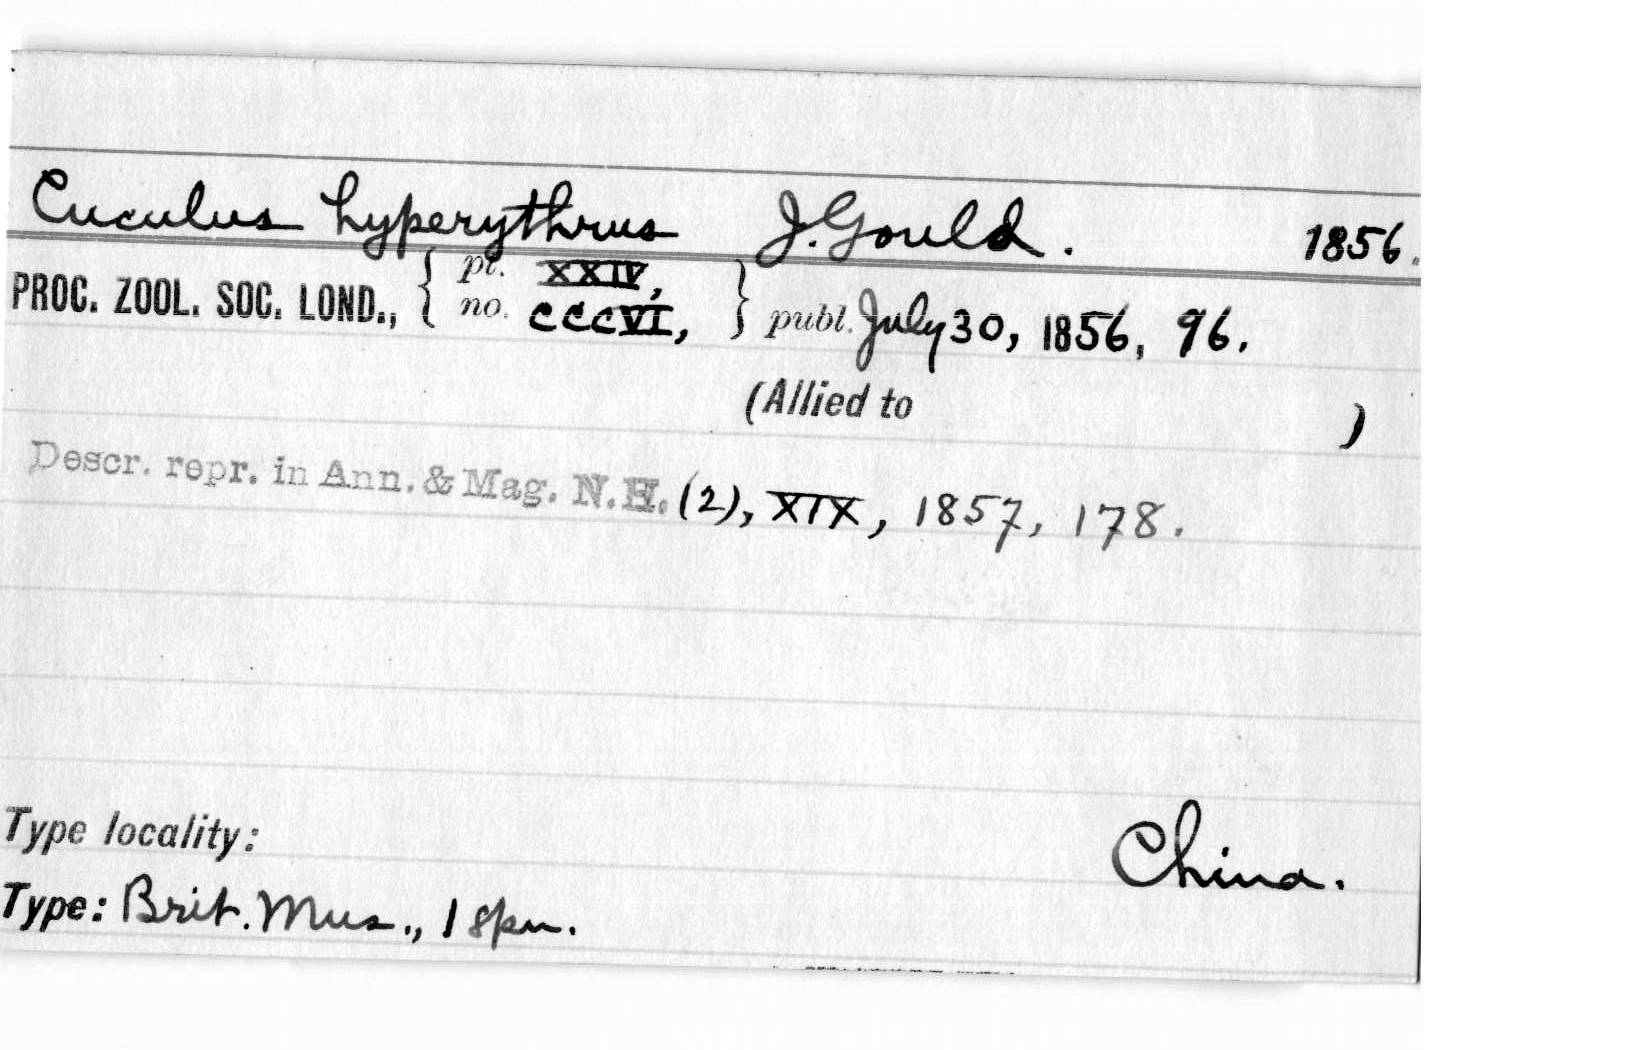 Cuculus hyperythrus J. Gould. 1856.
PROC. ZOOL. SOC. LOND., { pt. XXIV, no. CCCVI, } publ. July 30, 1856, 96.
(Allied to )
Descr. repr. in Ann. & Mag. N.H. (2), XIX, 1857, 178.
Type locality: China.
Type: Brit. Mus., 1 spm.